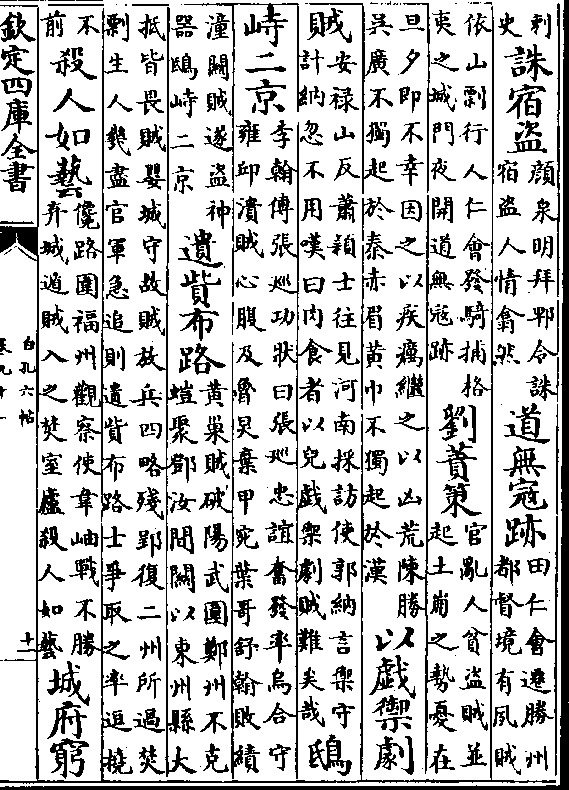 刺史 誅宿盗 顔泉明拜郫令誅宿盗人情翕然 道無冦跡 田仁會遷勝州都督境有夙賊
依山剽行人仁會發騎捕格夷之城門夜開道無冦跡 劉蕡策 官亂人貧盗賊並起土崩之勢憂在
旦夕即不幸因之以疾癘繼之以凶荒陳勝吳廣不獨起於秦赤眉黄巾不獨起於漢 以戯禦劇
賊 安禄山反蕭穎士往見河南採訪使郭納言禦守計納忽不用嘆曰肉食者以兒戯禦劇賊難矣哉 鴟
峙二京 李翰傳張巡功狀曰張巡忠誼奮發率烏合守雍邱潰賊心腹及魯炅棄甲宛葉哥舒翰敗績
潼關賊遂盗神器鴟峙二京 遺貲布路 黄巢賊破陽武圍鄭州不克螘聚鄧汝間關以東州縣大
抵皆畏賊嬰城守故賊放兵四略殘郢復二州所過焚剽生人幾盡官軍急追則遺貲布路士爭取之率逗撓
不前 殺人如藝 儳路圍福州觀察使韋岫戰不勝弃城遁賊入之焚室廬殺人如藝 城府窮
欽定四庫全書
白孔六帖
十一